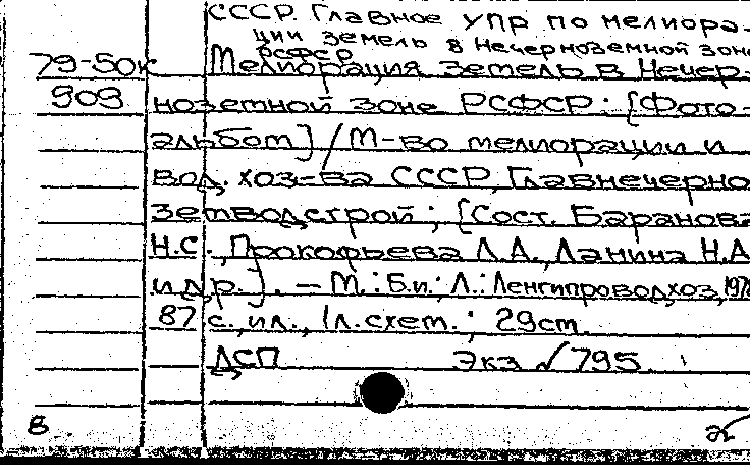 СССР. Главное упр по мелиора-
ции земель в Нечерноземной зоне
РСФСР
79-50к Мелиорация земель в Нечер-
909 ноземной зоне РСФСР: [Фото-
альбом] / М-во мелиорации и
вод. хоз-ва СССР, Главнечерно-
земводстрой; [Сост. Баранова
Н.С., Прокофьева Л.А., Ланина Н.А.
и др.]. — М.: Б.и.; Л.: Ленгипроводхоз, 1978
87 с., ил., 1л. схем.; 29см.
ДСП Экз √ 795.
в